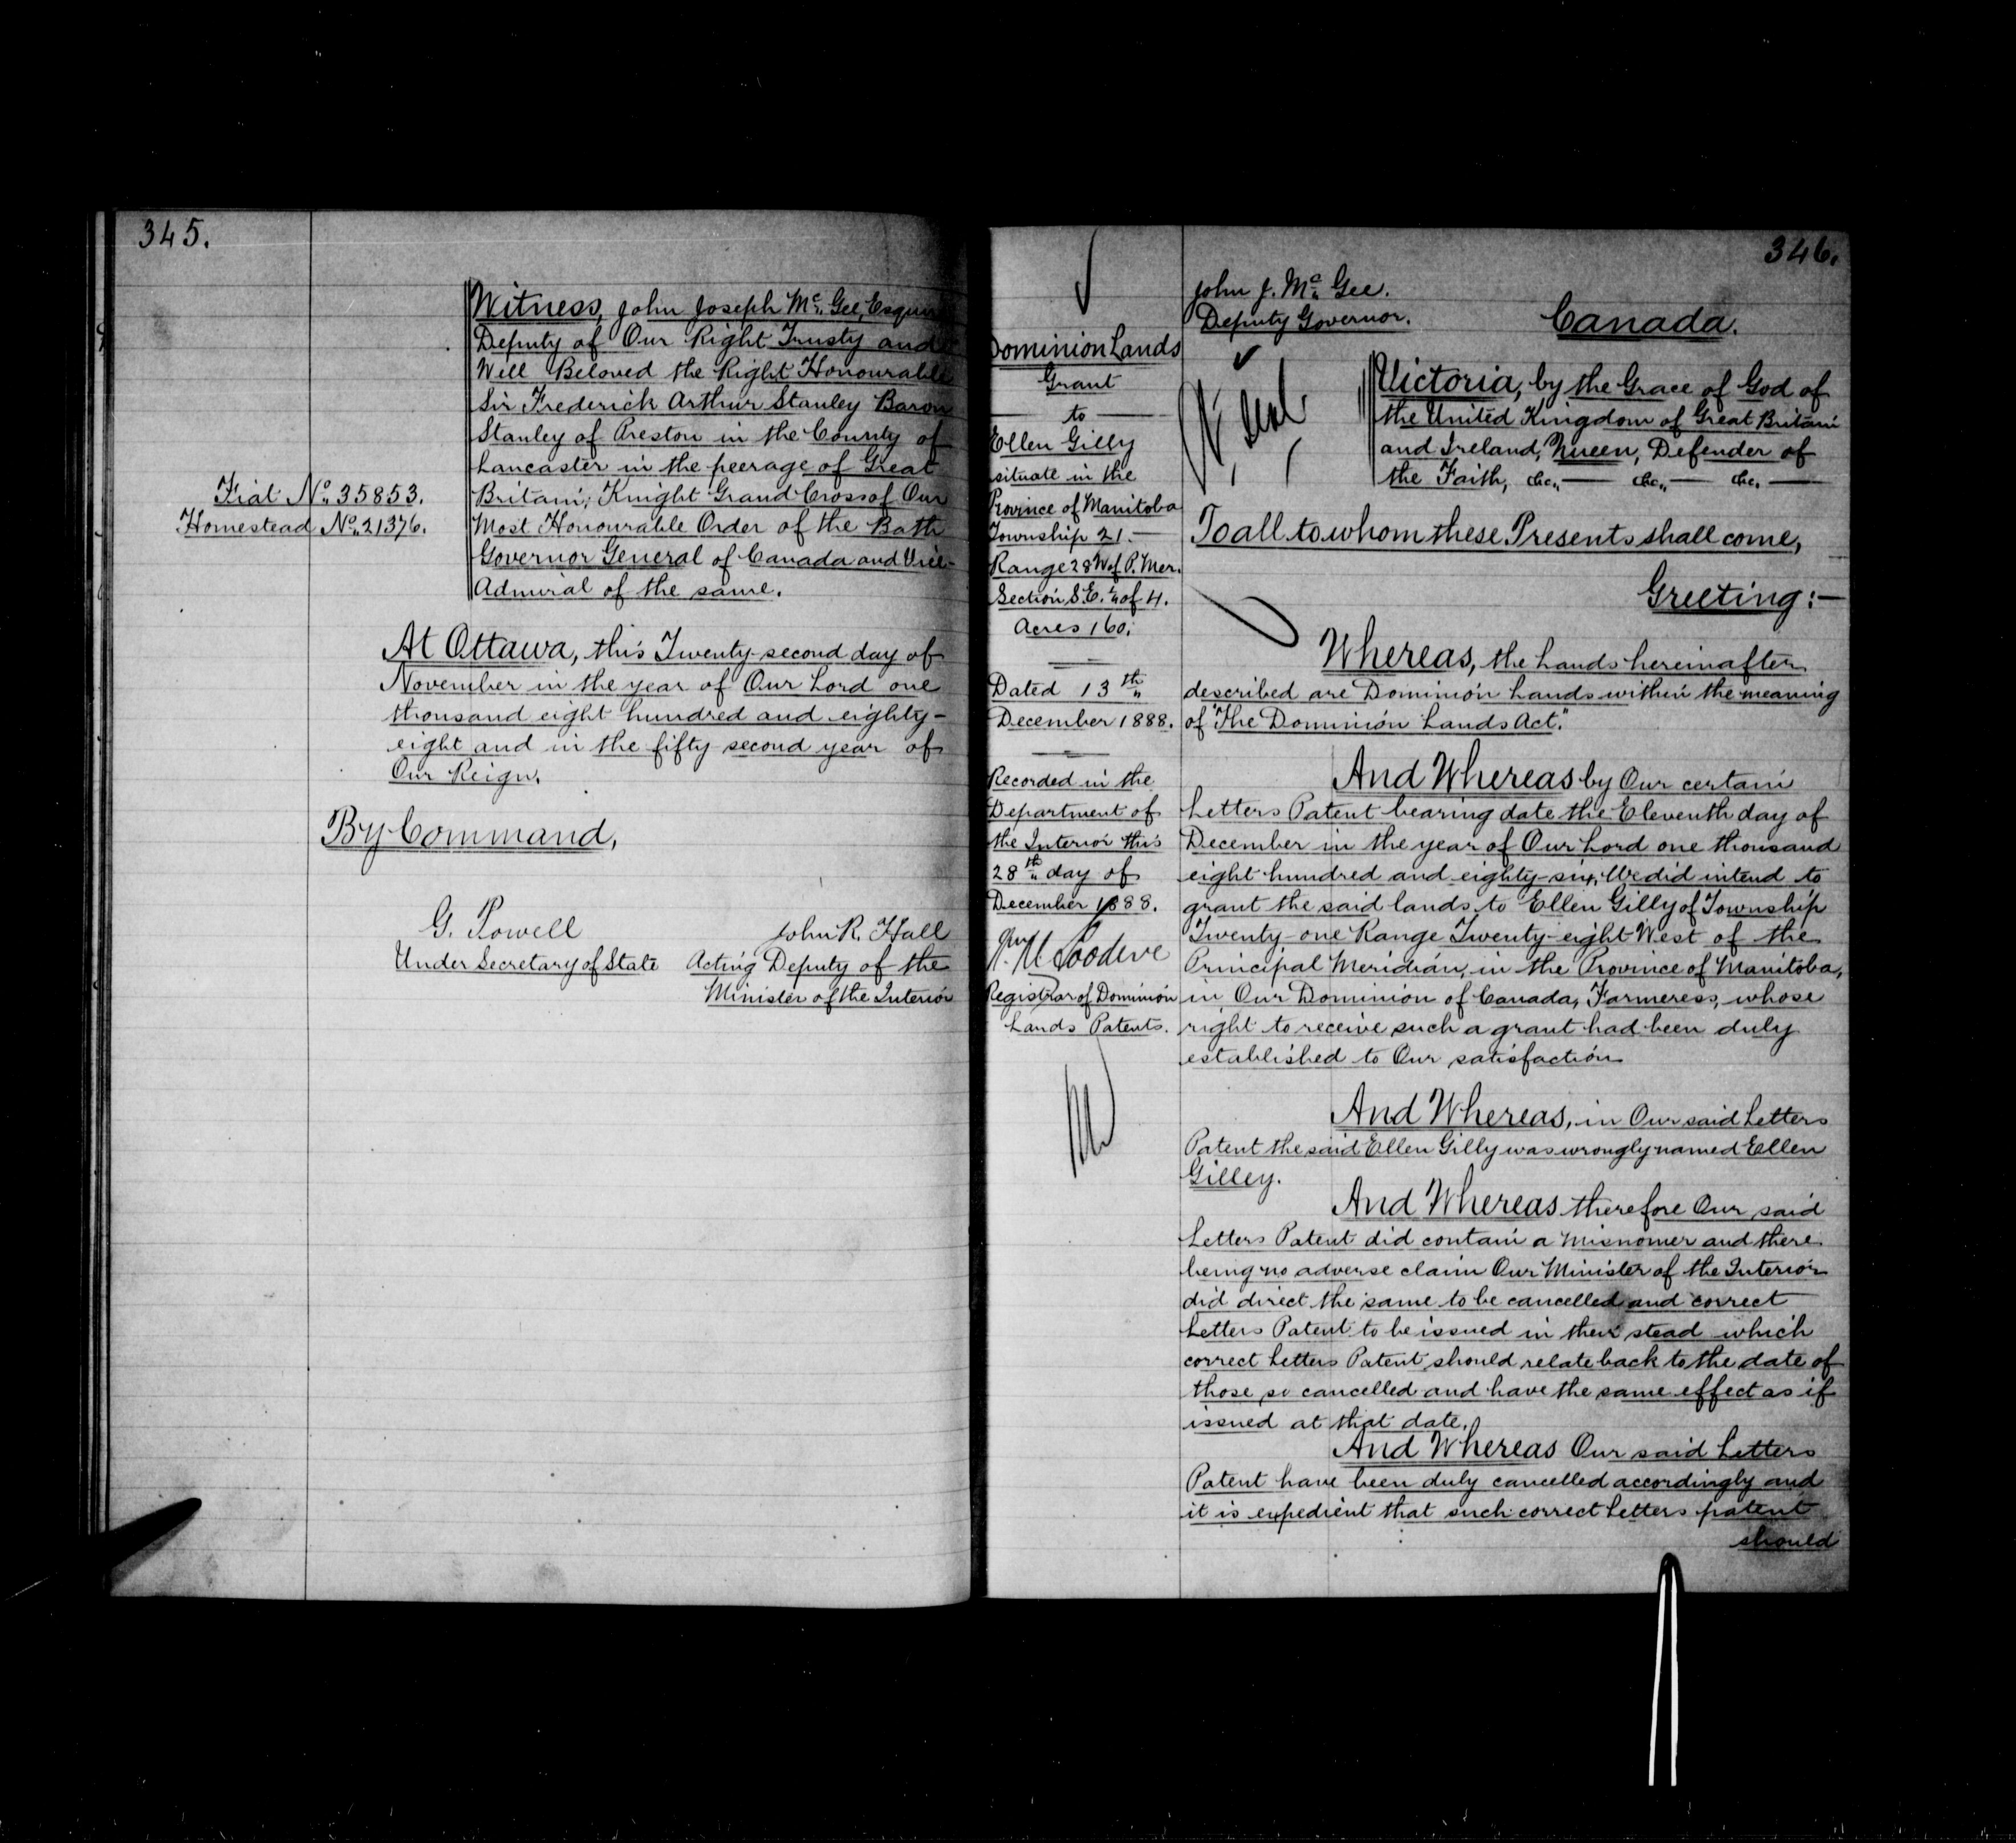 345.
Witness, John Joseph Mc. Gee, Esquire
Deputy of Our Right Trusty and
Well Beloved the Right Honourable
Sir Frederick Arthur Stanley Baron
Stanley of Preston in the County of
Lancaster in the peerage of Great
Britain; Knight Grand Cross of Our
Most Honourable Order of the Bath
Governor General of Canada and Vice-
Admiral of the same.
Fiat No. 35853.
Homestead No. 21376.
At Ottawa, this Twenty-second day of
November in the year of Our Lord one
thousand eight hundred and eighty-
eight and in the fifty second year of
Our Reign.
By Command,
G. Powell
Under Secretary of State
John R. Hall
Acting Deputy of the
Minister of the Interior
346.
Dominion Lands
Grant
to
Ellen Gilly
situate in the
Province of Manitoba
Township 21.—
Range 28 W of P. Mer.
Section S.E. ¼ of 4.
Acres 160.
Dated 13th
December 1888.
Recorded in the
Department of
the Interior this
28th day of
December 1888.
Goodeve
Registrar of Dominion
Lands Patents.
John J. Mc. Gee.
Deputy Governor.
Canada.
Seal
Victoria, by the Grace of God of
the United Kingdom of Great Britain
and Ireland, Queen, Defender of
the Faith, &c., — &c., — &c. —
To all to whom these Presents shall come,
Greeting:—
Whereas, the Lands hereinafter
described are Dominion Lands within the meaning
of "The Dominion Lands Act."
And Whereas by Our certain
Letters Patent bearing date the Eleventh day of
December in the year of Our Lord one thousand
eight hundred and eighty-six, We did intend to
grant the said lands to Ellen Gilly of Township
Twenty-one Range Twenty-eight West of the
Principal Meridian, in the Province of Manitoba,
in Our Dominion of Canada, Farmeress, whose
right to receive such a grant had been duly
established to Our satisfaction
And Whereas, in Our said Letters
Patent the said Ellen Gilly was wrongly named Ellen
Gilley.
And Whereas therefore Our said
Letters Patent did contain a misnomer and there
being no adverse claim Our Minister of the Interior
did direct the same to be cancelled and correct
Letters Patent to be issued in their stead which
correct Letters Patent should relate back to the date of
those so cancelled and have the same effect as if
issued at that date.
And Whereas Our said Letters
Patent have been duly cancelled accordingly and
it is expedient that such correct Letters patent
should